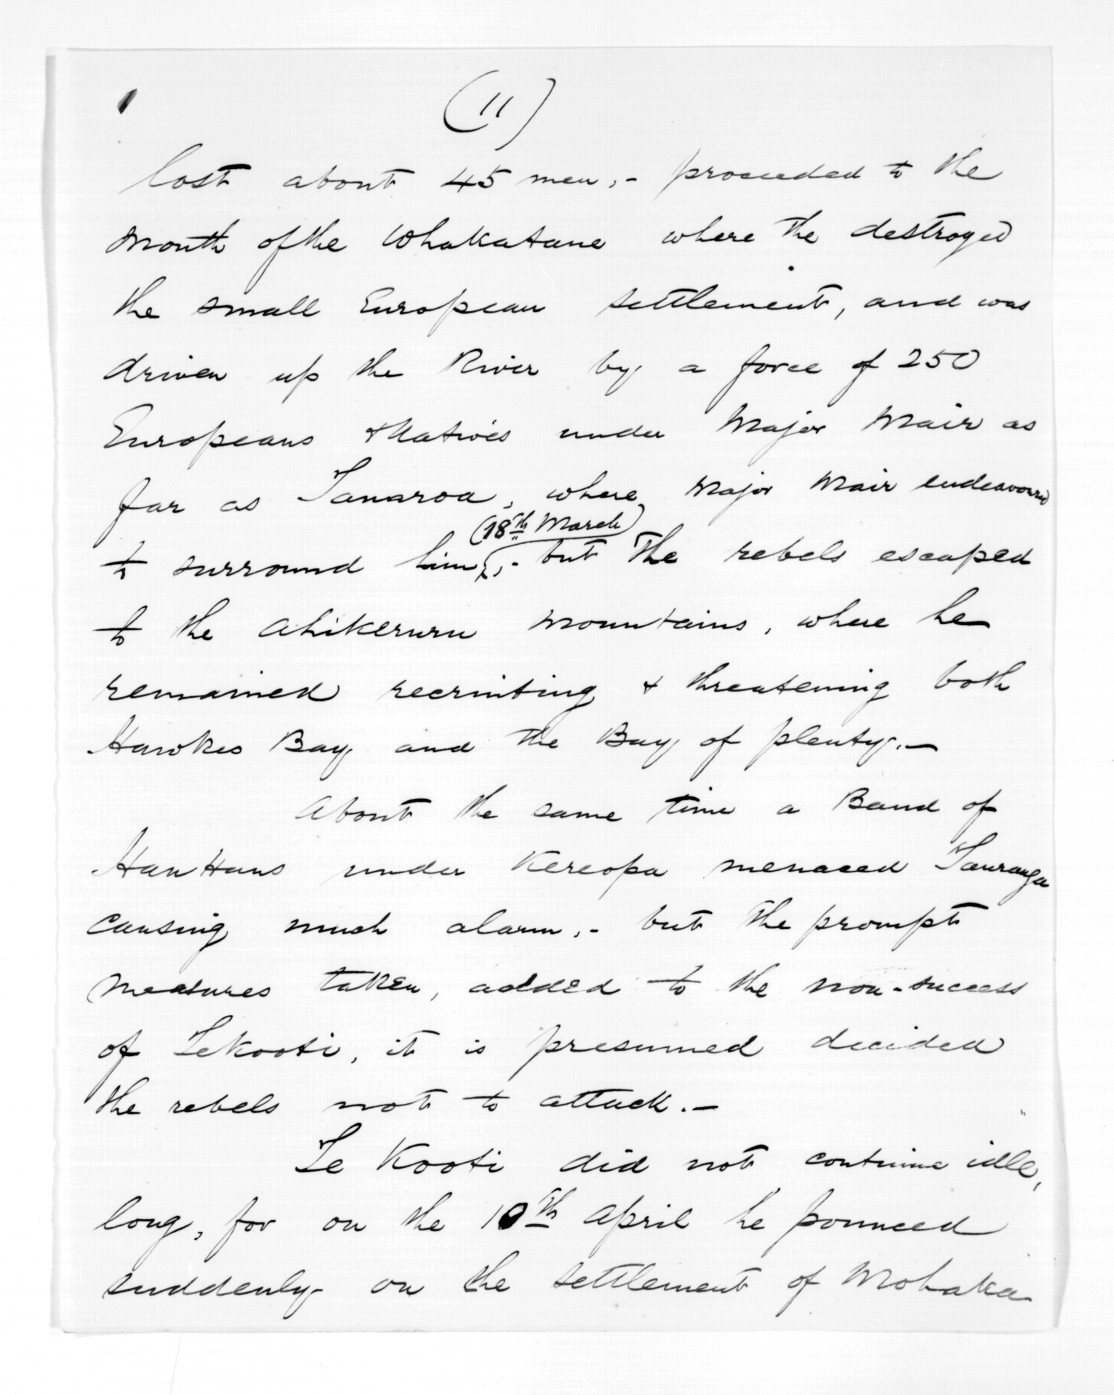 (11)
lost about 45 men, - proceeded to the
mouth of the Whakatane where the destroyed
the small European settlement, and was
driven up the River by a force of 250
Europeans & Natives under Major Mair as
far as Tanaroa, where Major Mair endeavoured
(18th March)
to surround him, - but the rebels escaped
to the Ahikeruru mountains, where he
remained recruiting & threatening both
Hawkes Bay and the Bay of plenty. —
About the same time a Band of
Hau Haus under Kereopa menaced Tauranga
causing much alarm, - but the prompt
measures taken, added to the non-success
of TeKooti, it is presumed decided
the rebels not to attack. —
Te Kooti did not continue idle,
long, for on the 10th April he pounced
suddenly on the settlement of Mohaka